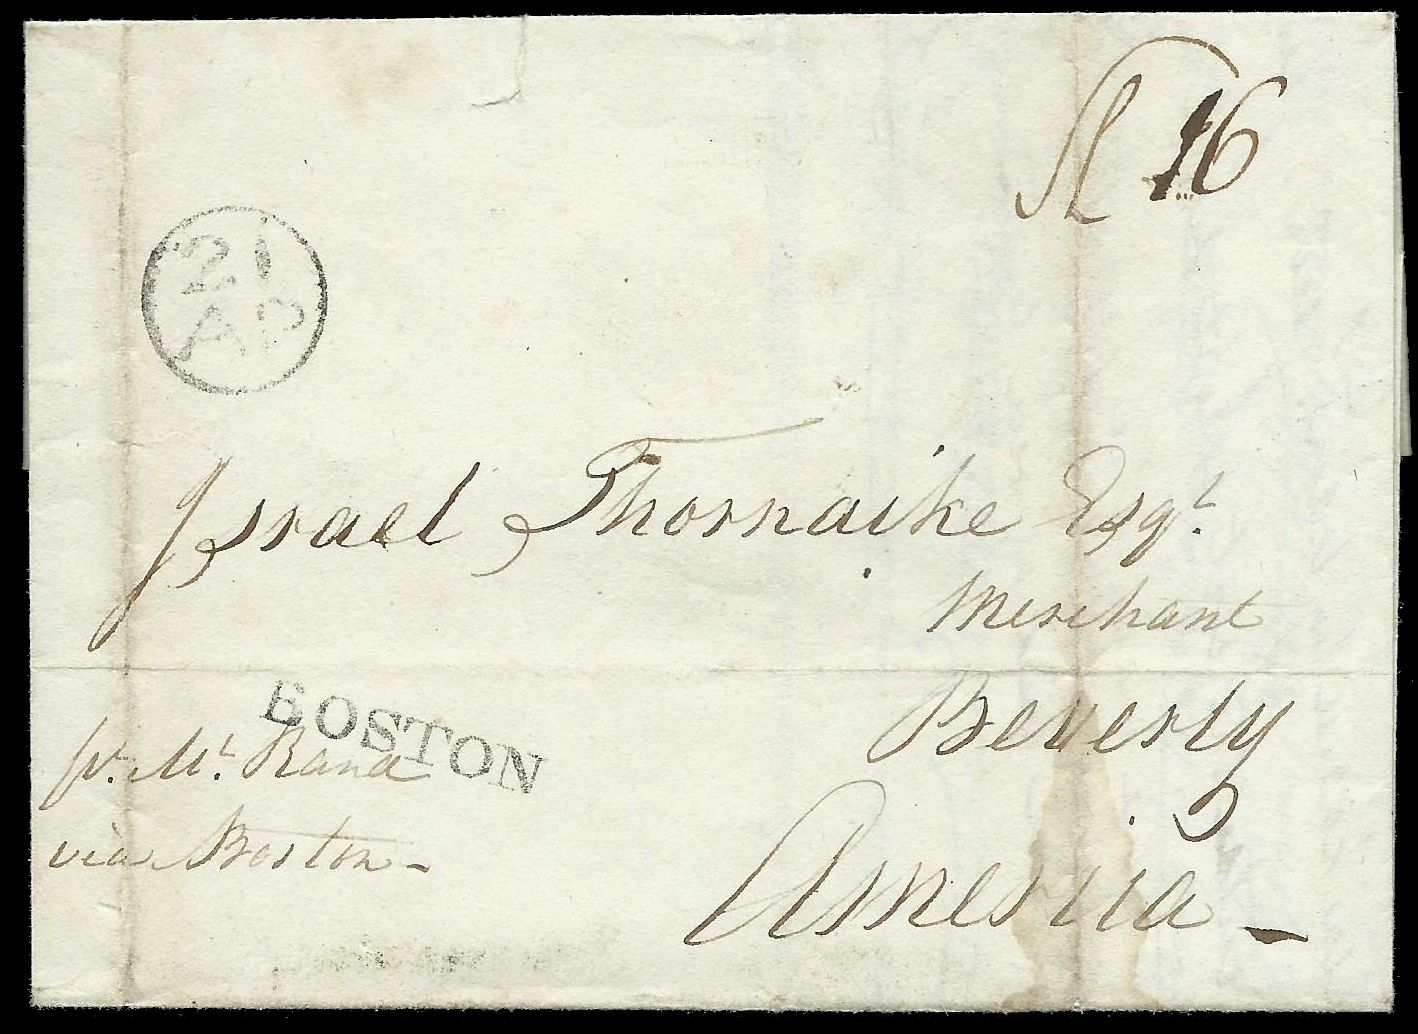 Sh 16
21
AP
Israel Thornaike Esqr.
Merchant
Beverly
America
BOSTON
pr. Mr. Rand
via Boston